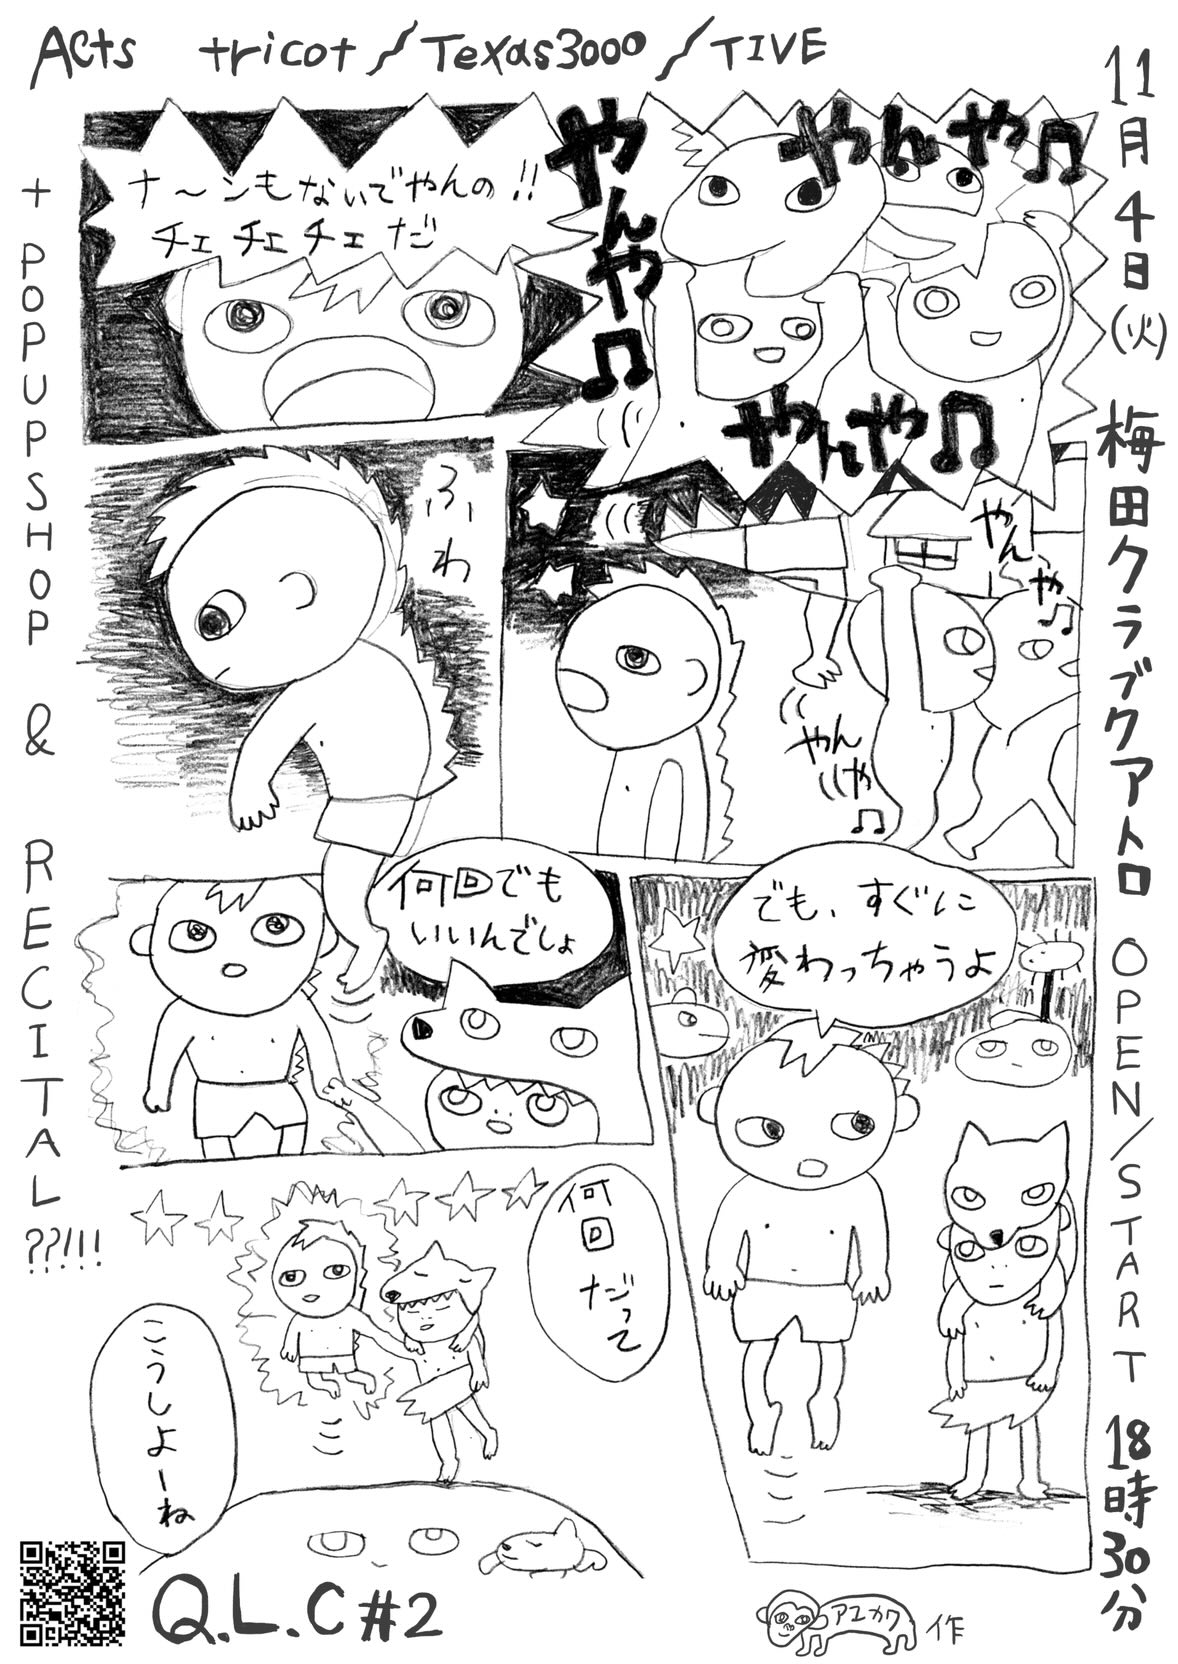 Acts tricot / Texas3000 / TIVE
11月4日(火) 梅田クラブクアトロ OPEN/START 18時30分
+ POPUPSHOP & RECITAL??!!!
ナ～ンもないでやんの!!
チェチェチェだ
やんや♫
やんや♫
やんや♫
ふわ
やんや♫
やんや♫
何回でも
いいんでしょ
でも、すぐに
変わっちゃうよ
何回だって
こうしよーね
Q.L.C #2
アユカワ作